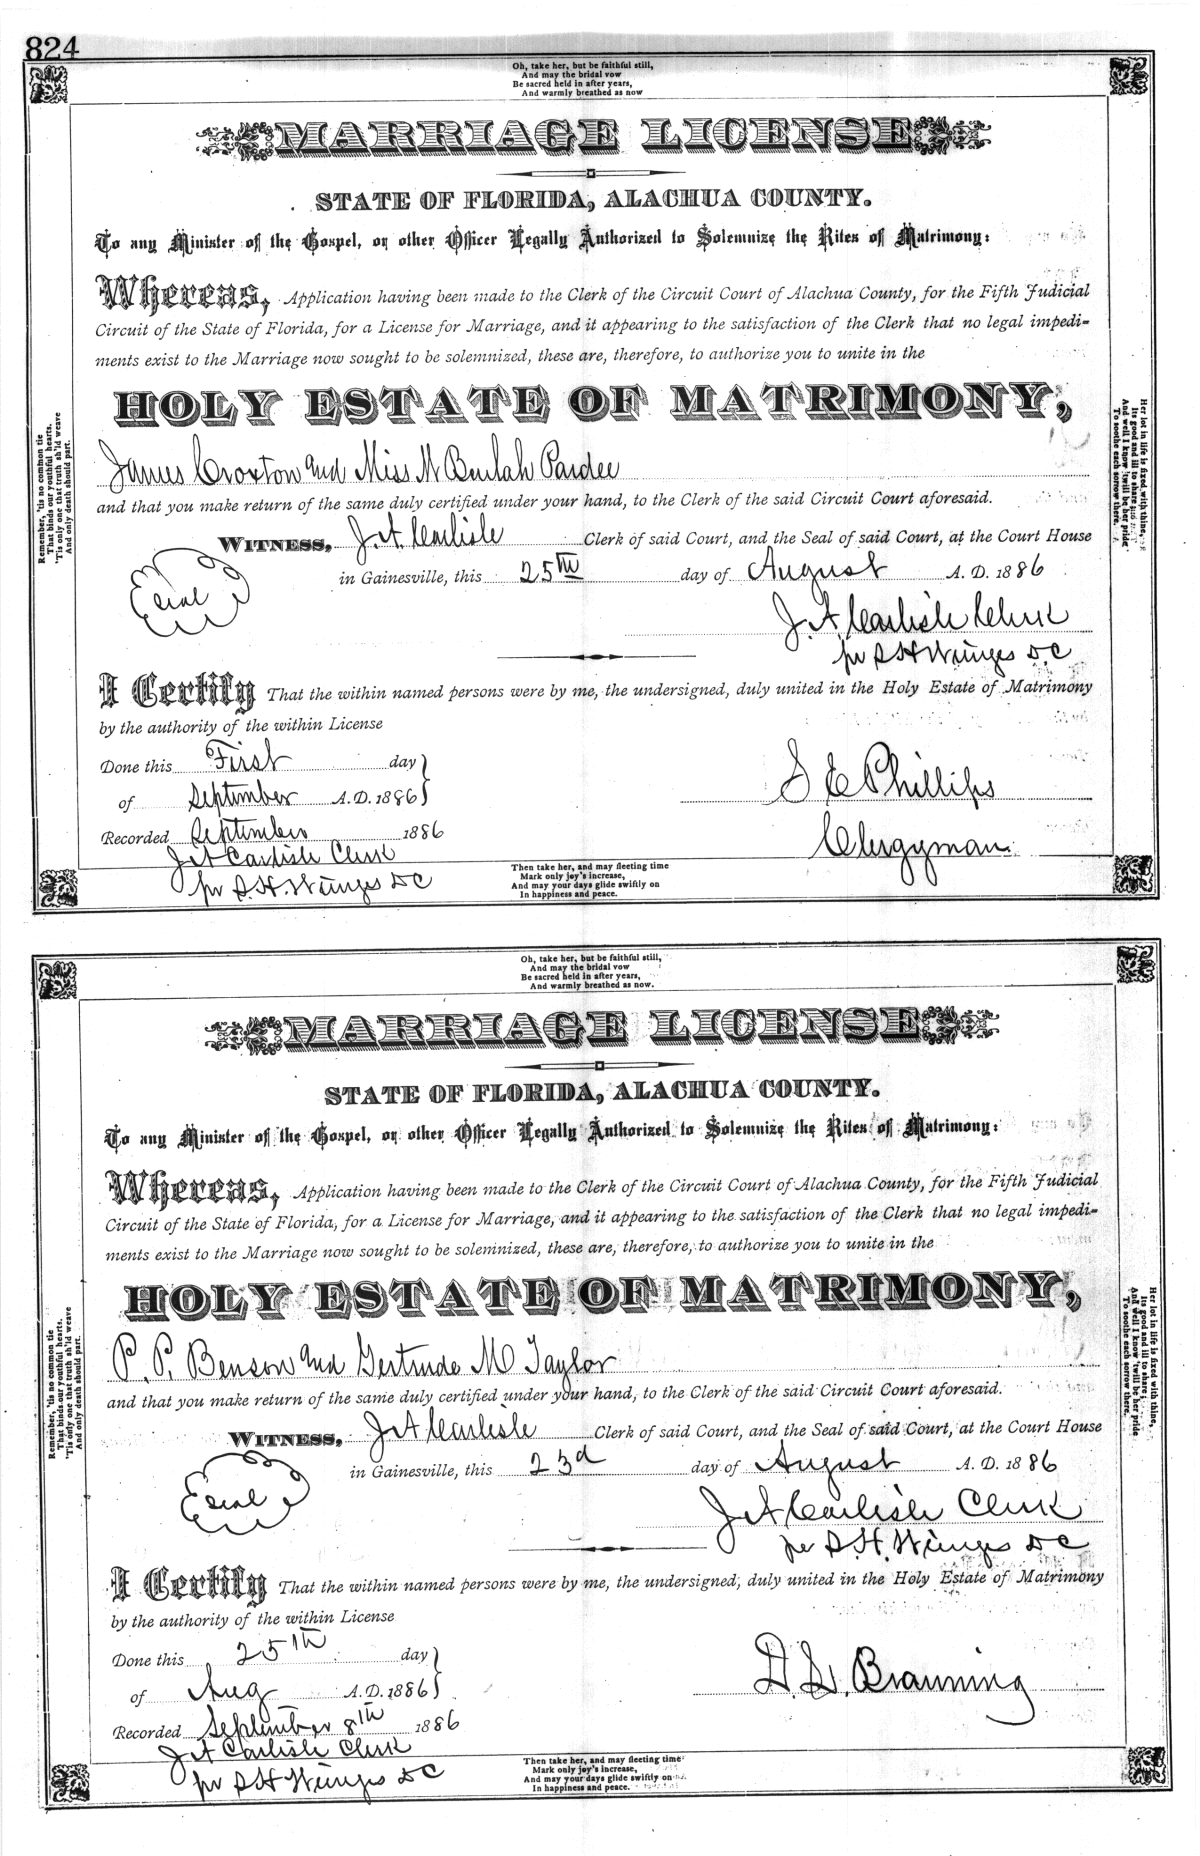 824
Oh, take her, but be faithful still,
And may the bridal vow
Be sacred held in after years,
And warmly breathed as now
MARRIAGE LICENSE
STATE OF FLORIDA, ALACHUA COUNTY.
To any Minister of the Gospel, or other Officer Legally Authorized to Solemnize the Rites of Matrimony:
Whereas, Application having been made to the Clerk of the Circuit Court of Alachua County, for the Fifth Judicial
Circuit of the State of Florida, for a License for Marriage, and it appearing to the satisfaction of the Clerk that no legal impedi-
ments exist to the Marriage now sought to be solemnized, these are, therefore, to authorize you to unite in the
HOLY ESTATE OF MATRIMONY,
James Croxton and Miss M Beulah Pardee
and that you make return of the same duly certified under your hand, to the Clerk of the said Circuit Court aforesaid.
WITNESS, J. A. Carlisle Clerk of said Court, and the Seal of said Court, at the Court House
Seal
in Gainesville, this 25th day of August A. D. 1886
J. A. Carlisle Clerk
per S H Wienges D. C
I Certify That the within named persons were by me, the undersigned, duly united in the Holy Estate of Matrimony
by the authority of the within License
Done this First day
of September A. D. 1886
S E Phillips
Recorded September 1886
Clergyman
J A Carlisle Clerk
per S. H. Wienges DC
Remember, 'tis no common tie
That binds our youthful hearts.
'Tis only one that truth sh'ld weave
And only death should part.
Her lot in life is fixed with thine,
Its good and ill to share
And well I know 'twill be her pride
To soothe each sorrow there.
Then take her, and may fleeting time
Mark only joy's increase,
And may your days glide swiftly on
In happiness and peace.
Oh, take her, but be faithful still,
And may the bridal vow
Be sacred held in after years,
And warmly breathed as now.
MARRIAGE LICENSE
STATE OF FLORIDA, ALACHUA COUNTY.
To any Minister of the Gospel, or other Officer Legally Authorized to Solemnize the Rites of Matrimony:
Whereas, Application having been made to the Clerk of the Circuit Court of Alachua County, for the Fifth Judicial
Circuit of the State of Florida, for a License for Marriage, and it appearing to the satisfaction of the Clerk that no legal impedi-
ments exist to the Marriage now sought to be solemnized, these are, therefore, to authorize you to unite in the
HOLY ESTATE OF MATRIMONY,
P. P. Benson and Gertrude M Taylor
and that you make return of the same duly certified under your hand, to the Clerk of the said Circuit Court aforesaid.
WITNESS, J A Carlisle Clerk of said Court, and the Seal of said Court, at the Court House
Seal
in Gainesville, this 23d day of August A. D. 1886
J A Carlisle Clerk
per S. H. Wienges DC
I Certify That the within named persons were by me, the undersigned, duly united in the Holy Estate of Matrimony
by the authority of the within License
Done this 25th day
of Aug A. D. 1886
Branning
Recorded September 8th 1886
J A Carlisle Clerk
per S H Wienges DC
Remember, 'tis no common tie
That binds our youthful hearts.
'Tis only one that truth sh'ld weave
And only death should part.
Her lot in life is fixed with thine,
Its good and ill to share;
And well I know 'twill be her pride
To soothe each sorrow there.
Then take her, and may fleeting time
Mark only joy's increase,
And may your days glide swiftly on
In happiness and peace.